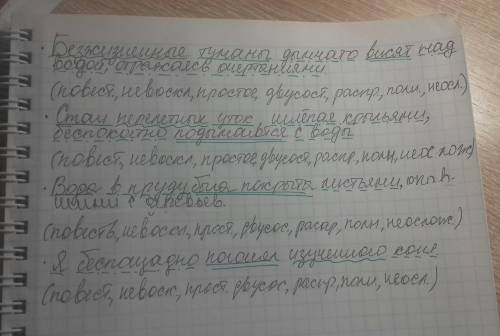 · Безжизненные туманы дымчато висят над
водой, отражаясь очертаниями
(повест, невоскл, простое, двусост, распр, полн, неосл.)
· Стаи перелетных уток, шлёпая крыльями,
беспокойно подымаются с воды
(повест, невоскл, простое, двусост, распр, полн, неослож)
· Вода в пруду была покрыта листьями, опав-
шими с деревьев.
(повеств, невоскл, прост, двусос, распр, полн, неослож.)
· Я беспощадно погонял измученного коня
(повест, невоскл, прост, двусос, распр, полн, неосл.)